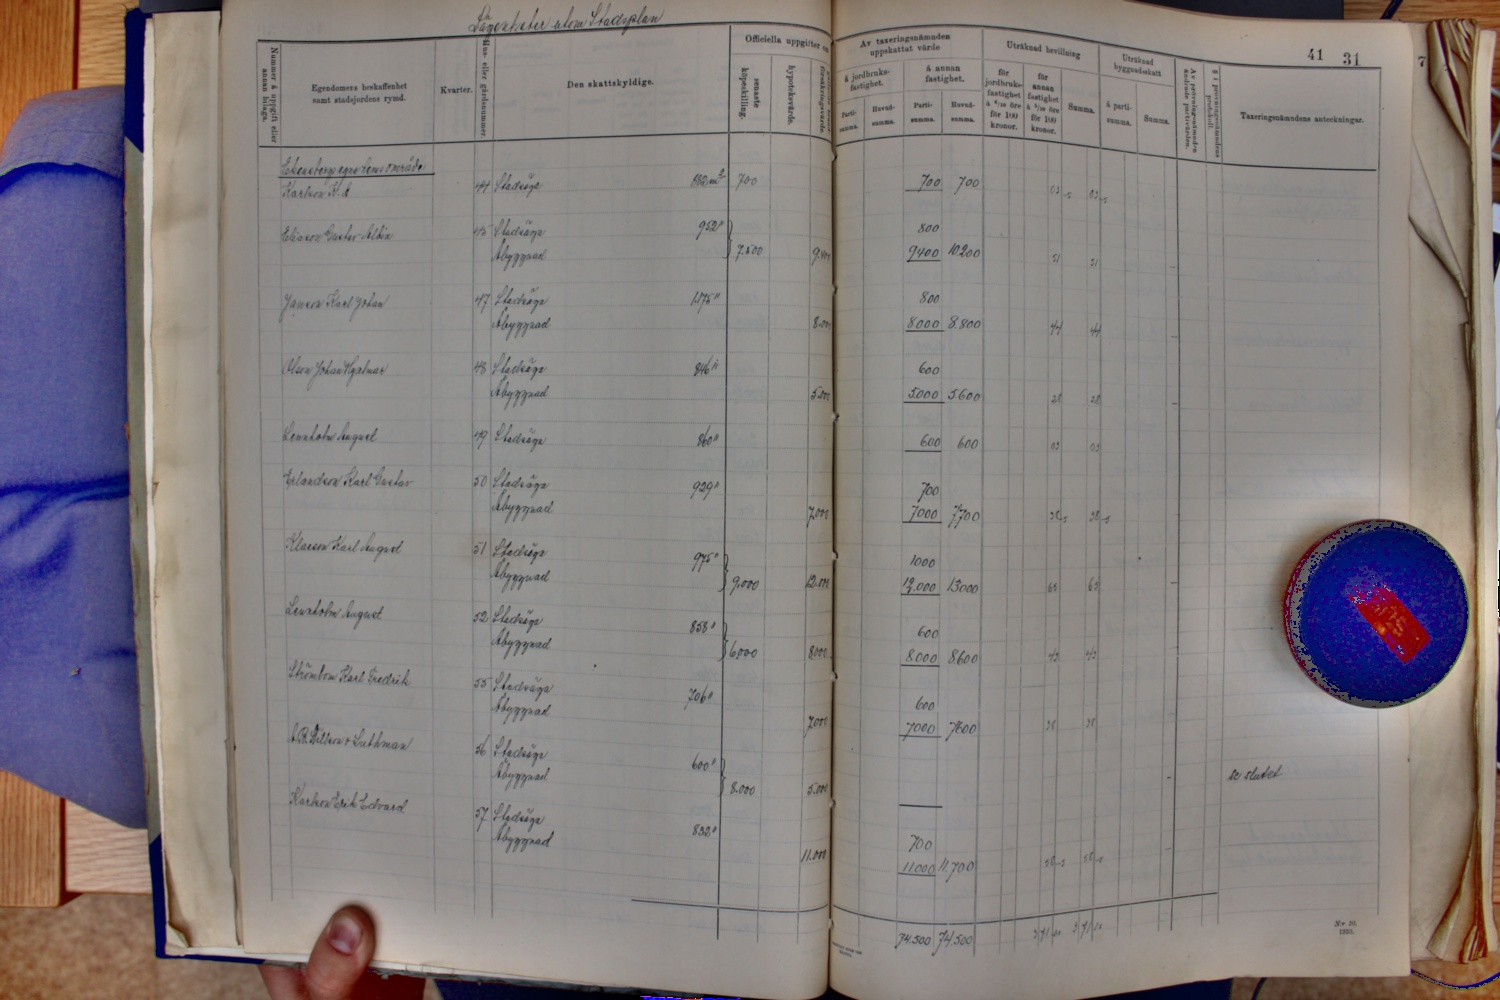 Lägenheter utom Stadsplan
41 31
Nummer å uppgift eller annan bilaga.
Egendomens beskaffenhet samt stadsjordens rymd.
Kvarter.
Hus- eller gårdsnummer
Den skattskyldige.
Officiella uppgifter om
senaste köpeskilling.
hypoteksvärde.
försäkringsvärde.
Av taxeringsnämnden uppskattat värde
å jordbruksfastighet.
å annan fastighet.
Parti-summa.
Huvud-summa.
Parti-summa.
Huvud-summa.
Uträknad bevillning
för jordbruksfastighet å 6/10 öre för 100 kronor.
för annan fastighet å 5/10 öre för 100 kronor.
Summa.
Uträknad byggnadsskatt
à parti-summa.
Summa.
Taxeringsnämndens anteckningar.
egna hems område
Karlson K. A 44 Stadsäga 882 m2 700 700 700
Eliason Gustav Albin 45 Stadsäga 952" 800
Åbyggnad 7.500 9.400 9400 10200 51 51
Janson Karl Johan 47 Stadsäga 1175" 800
Åbyggnad 8.000 8000 8.800 44 44
Olson Johan Hjalmar 48 Stadsäga 846" 600
Åbyggnad 5.000 5.000 5.600 28 28
Lennholm August 49 Stadsäga 860" 600 600 03 03
Erlandson Karl Gustav 50 Stadsäga 929" 700
Åbyggnad 7.000 7000 7700 38-5 38-5
Klason Karl August 51 Stadsäga 975" 1000
Åbyggnad 9.000 12.000 12.000 13000 65 65
Lennholm August 52 Stadsäga 858" 600
Åbyggnad 6.000 8.000 8.000 8.600 43 43
Strömbom Karl Fredrik 55 Stadsäga 706" 600
Åbyggnad 7.000 7000 7600 38 38
56 Stadsäga 600"
Åbyggnad 8.000 5.000 se slutet
Karlson Erik Edvard 57 Stadsäga 832" 700
Åbyggnad 11.000 11.000 11.700 58-5 58-5
74.500 74.500